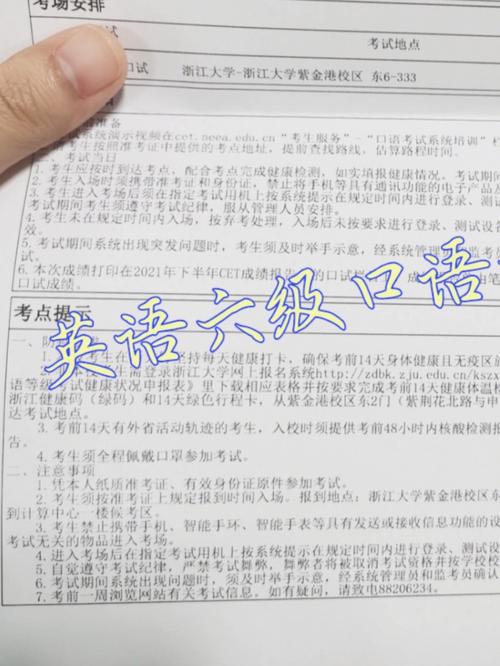 考场安排
考试地点
口试 浙江大学-浙江大学紫金港校区 东6-333
准备
试系统演示视频在cet.neea.edu.cn“考生服务”-“口语考试系统培训”
考生按照准考证中提供的考点地址，提前查找路线，估算路程时间。
二、考试当日
1. 考生应按时到达考点，配合考点完成健康检测，如实填报健康情况。考试期间
2. 考生入场时须携带准考证和身份证，禁止将手机等具有通讯功能的电子产品
3. 考生入场后须在指定考试用机上按系统提示在规定时间内进行登录、测试
考试期间考生须遵守考试纪律，服从管理人员安排。
4. 考生未在规定时间内入场，按弃考处理，入场后未按要求进行登录、测试设备
5. 考试期间系统出现突发问题时，考生须及时举手示意，经系统管理员
6. 本次成绩打印在2021年下半年CET成绩报告
口试成绩。
英语六级口语
考点提示
一、防
1. 考生在 坚持每天健康打卡，确保考前14天身体健康且无疫区
生需登录浙江大学网上报名系统http://zdbk.zju.edu.cn/kszx
语等级考试健康状况申报表》里下载相应表格并按要求完成考前14天健康体温
浙江健康码（绿码）和14天绿色行程卡，从紫金港校区东2门（紫荆花北路与申
达考试地点。
3. 考前14天有外省活动轨迹的考生，入校时须提供考前48小时内核酸检测报
告。
4. 考生须全程佩戴口罩参加考试。
二、注意事项
1. 凭本人纸质准考证、有效身份证原件参加考试。
2. 考生须按准考证上规定报到时间入场。报到地点：浙江大学紫金港校区东
到计算中心一楼候考区。
3. 考生禁止携带手机、智能手环、智能手表等具有发送或接收信息功能的设
考试无关的物品进入考场。
4. 进入考场后在指定考试用机上按系统提示在规定时间内进行登录、测试设
5. 自觉遵守考试纪律，严禁考试舞弊，舞弊者将被取消考试资格并按学校
6. 考试期间系统出现问题时，须及时举手示意，经系统管理员和监考员确认
7. 考前一周浏览网站有关考试信息。如有疑问，请致电88206234。